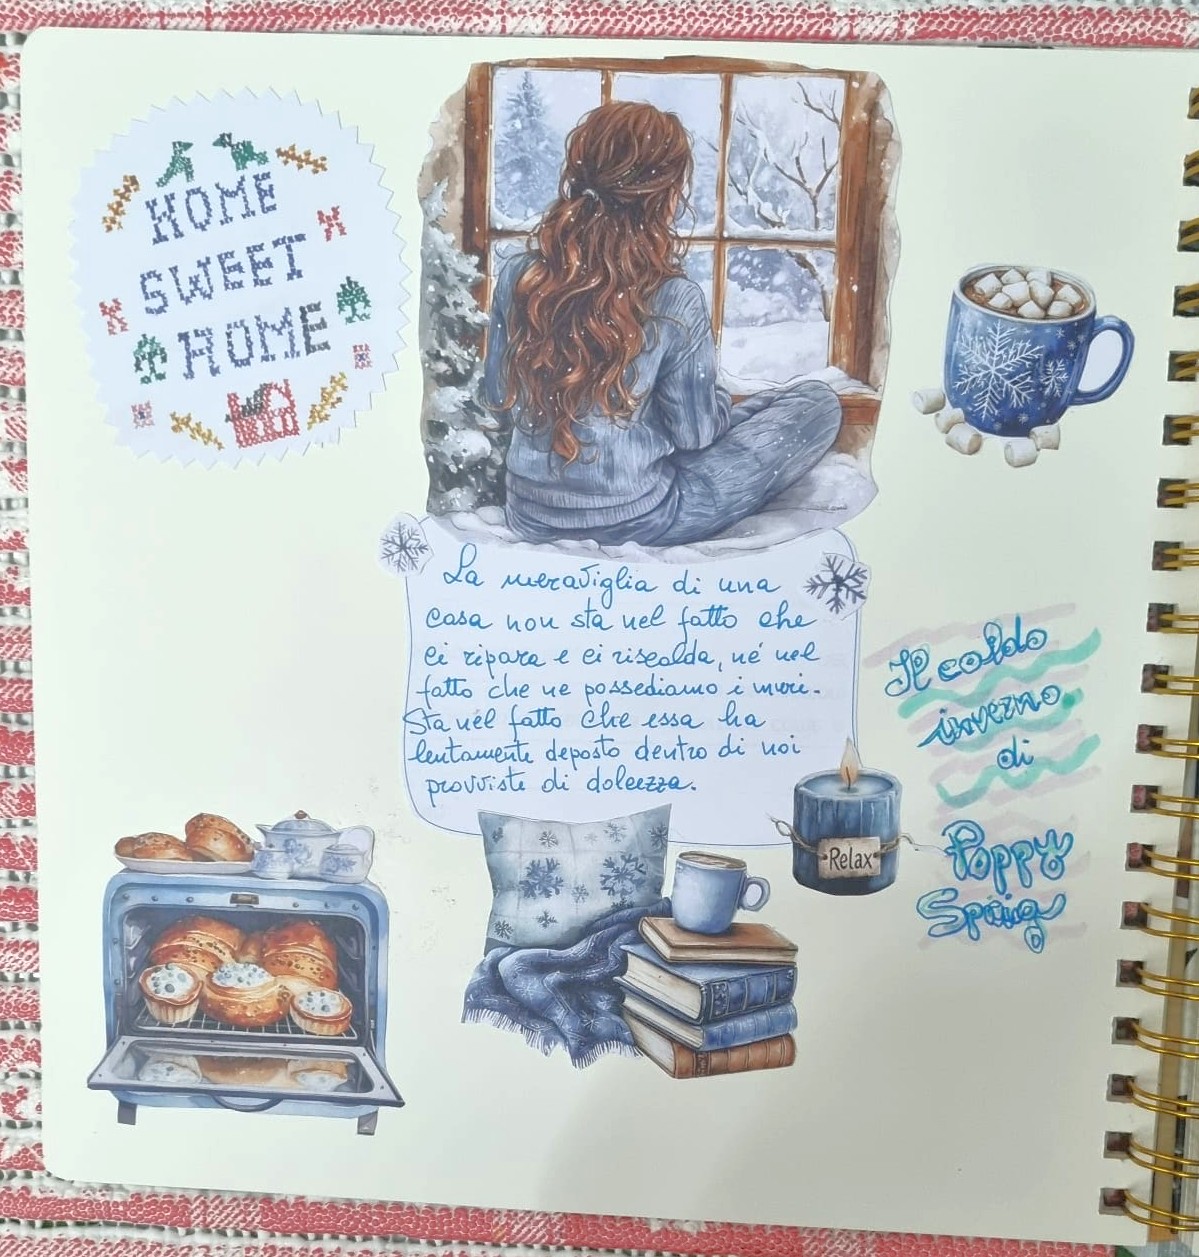 HOME
SWEET
HOME
La meraviglia di una
casa non sta nel fatto che
ci ripara e ci riscalda, né nel
fatto che ne possediamo i muri.
Sta nel fatto che essa ha
lentamente deposto dentro di noi
provviste di dolcezza.
Relax
Il caldo
inverno
di
Poppy
Spring